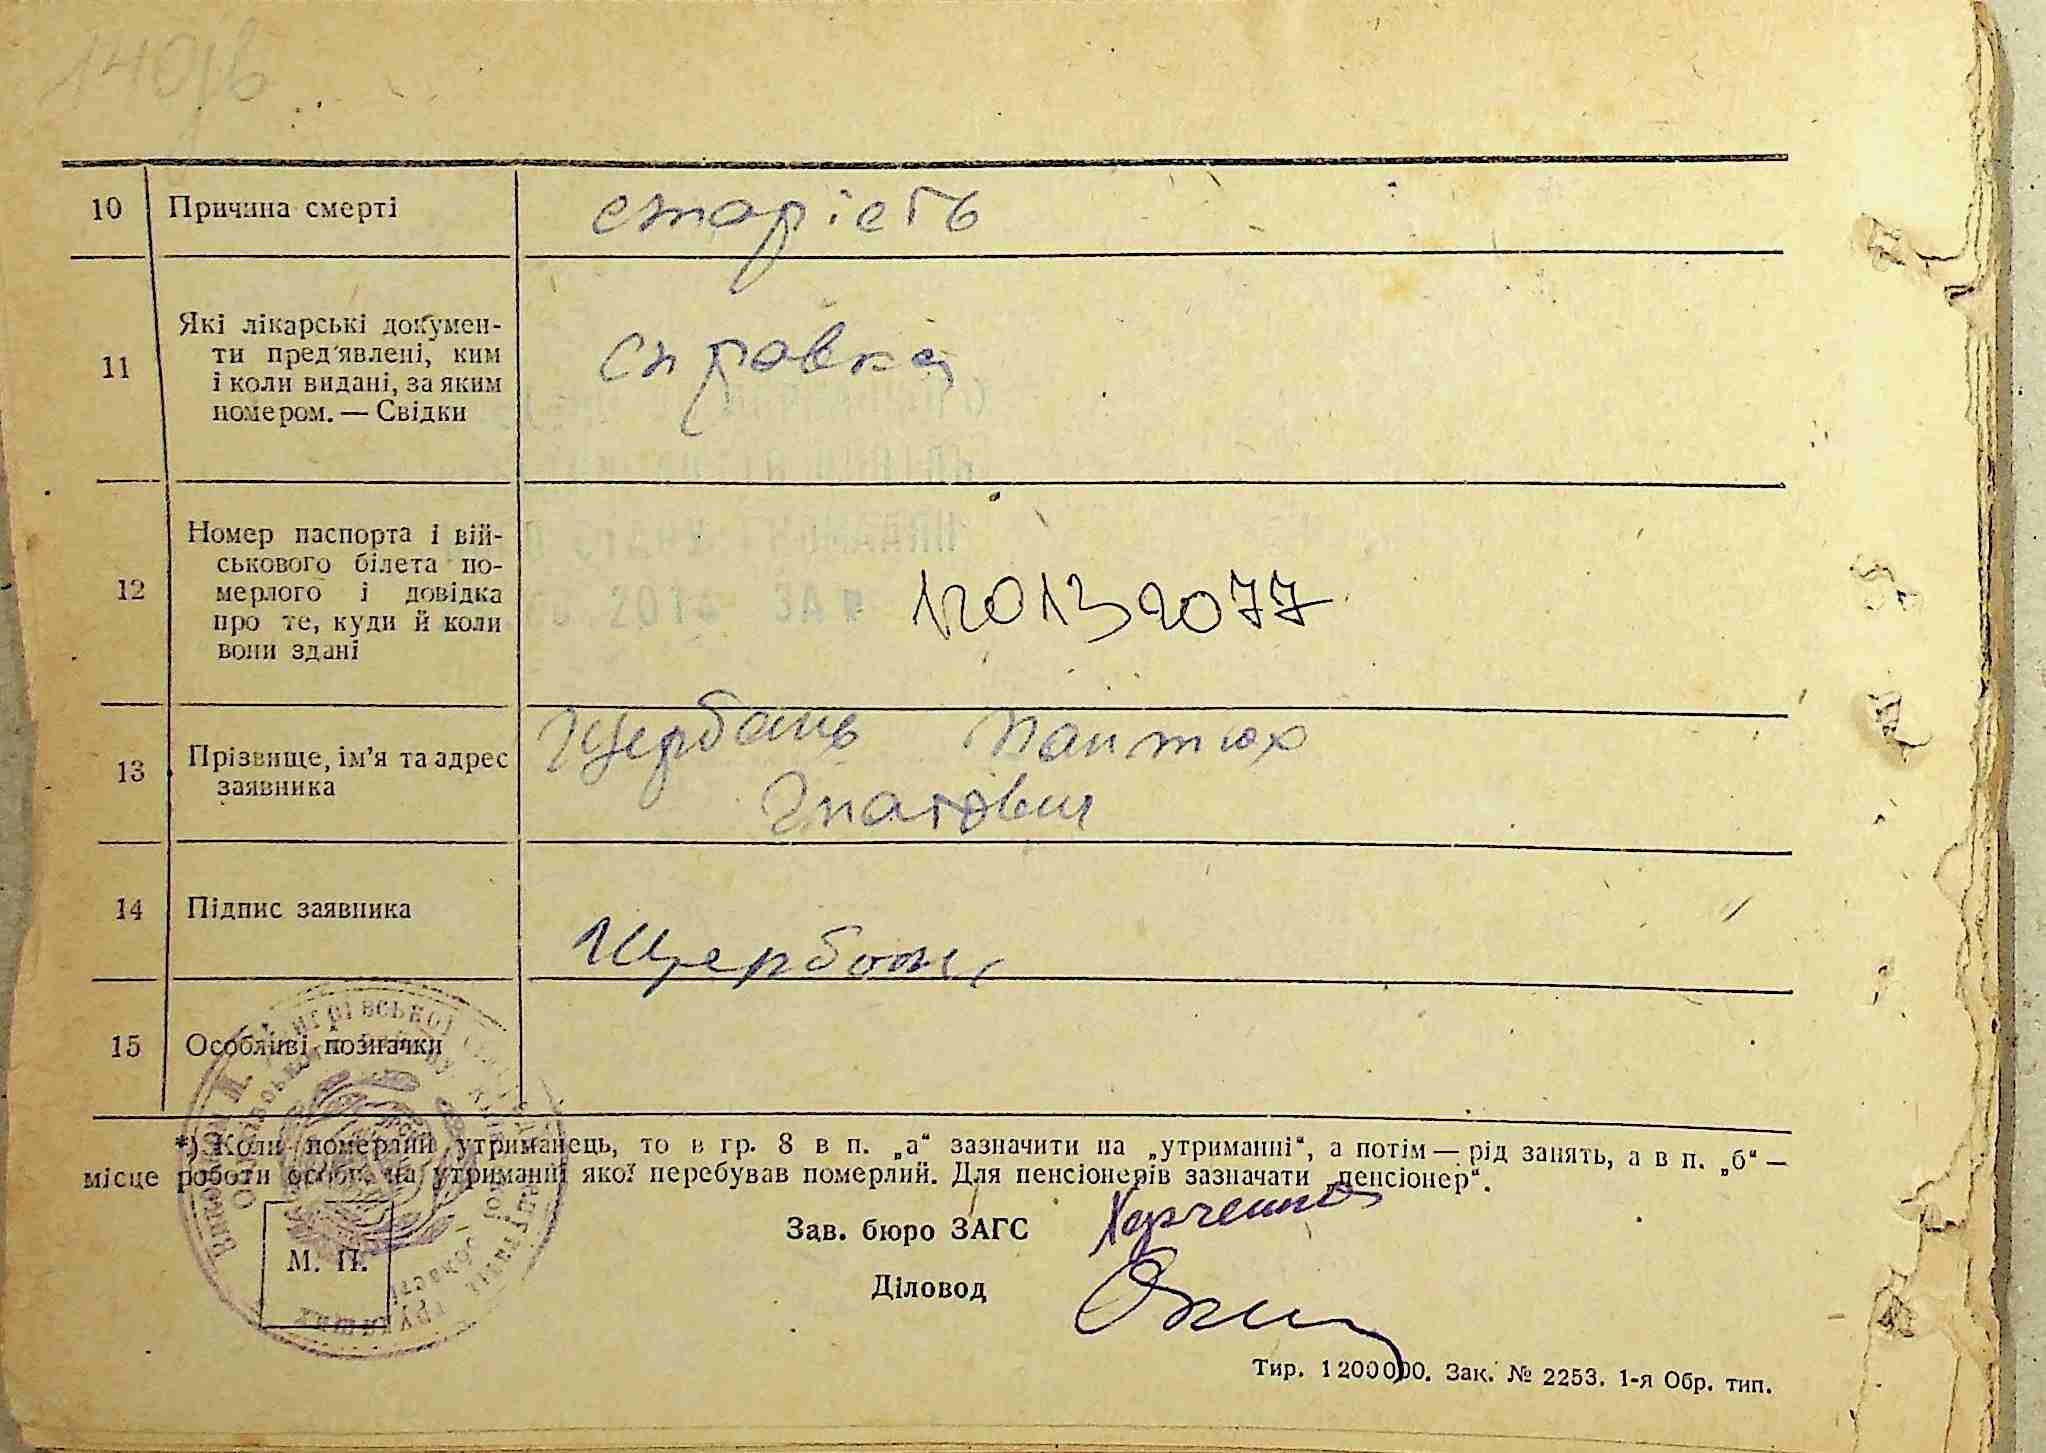 140зв
10 Причина смерті старість
11 Які лікарські докумен-
ти пред'явлені, ким
і коли видані, за яким
номером. — Свідки
справка
12 Номер паспорта і вій-
ськового білета по-
мерлого і довідка
про те, куди й коли
вони здані
12013 2077
13 Прізвище, ім'я та адрес
заявника
Щербань Пантюх
Гнатович
14 Підпис заявника
Щербань
15 Особливі позначки
*) Коли померлий утриманець, то в гр. 8 в п. „а“ зазначити на „утриманні“, а потім — рід занять, а в п. „б“ —
місце роботи особи, на утриманні якої перебував померлий. Для пенсіонерів зазначати „пенсіонер“.
Зав. бюро ЗАГС Харченко
М. П.
Діловод
Тир. 1200000. Зак. № 2253. 1-я Обр. тип.